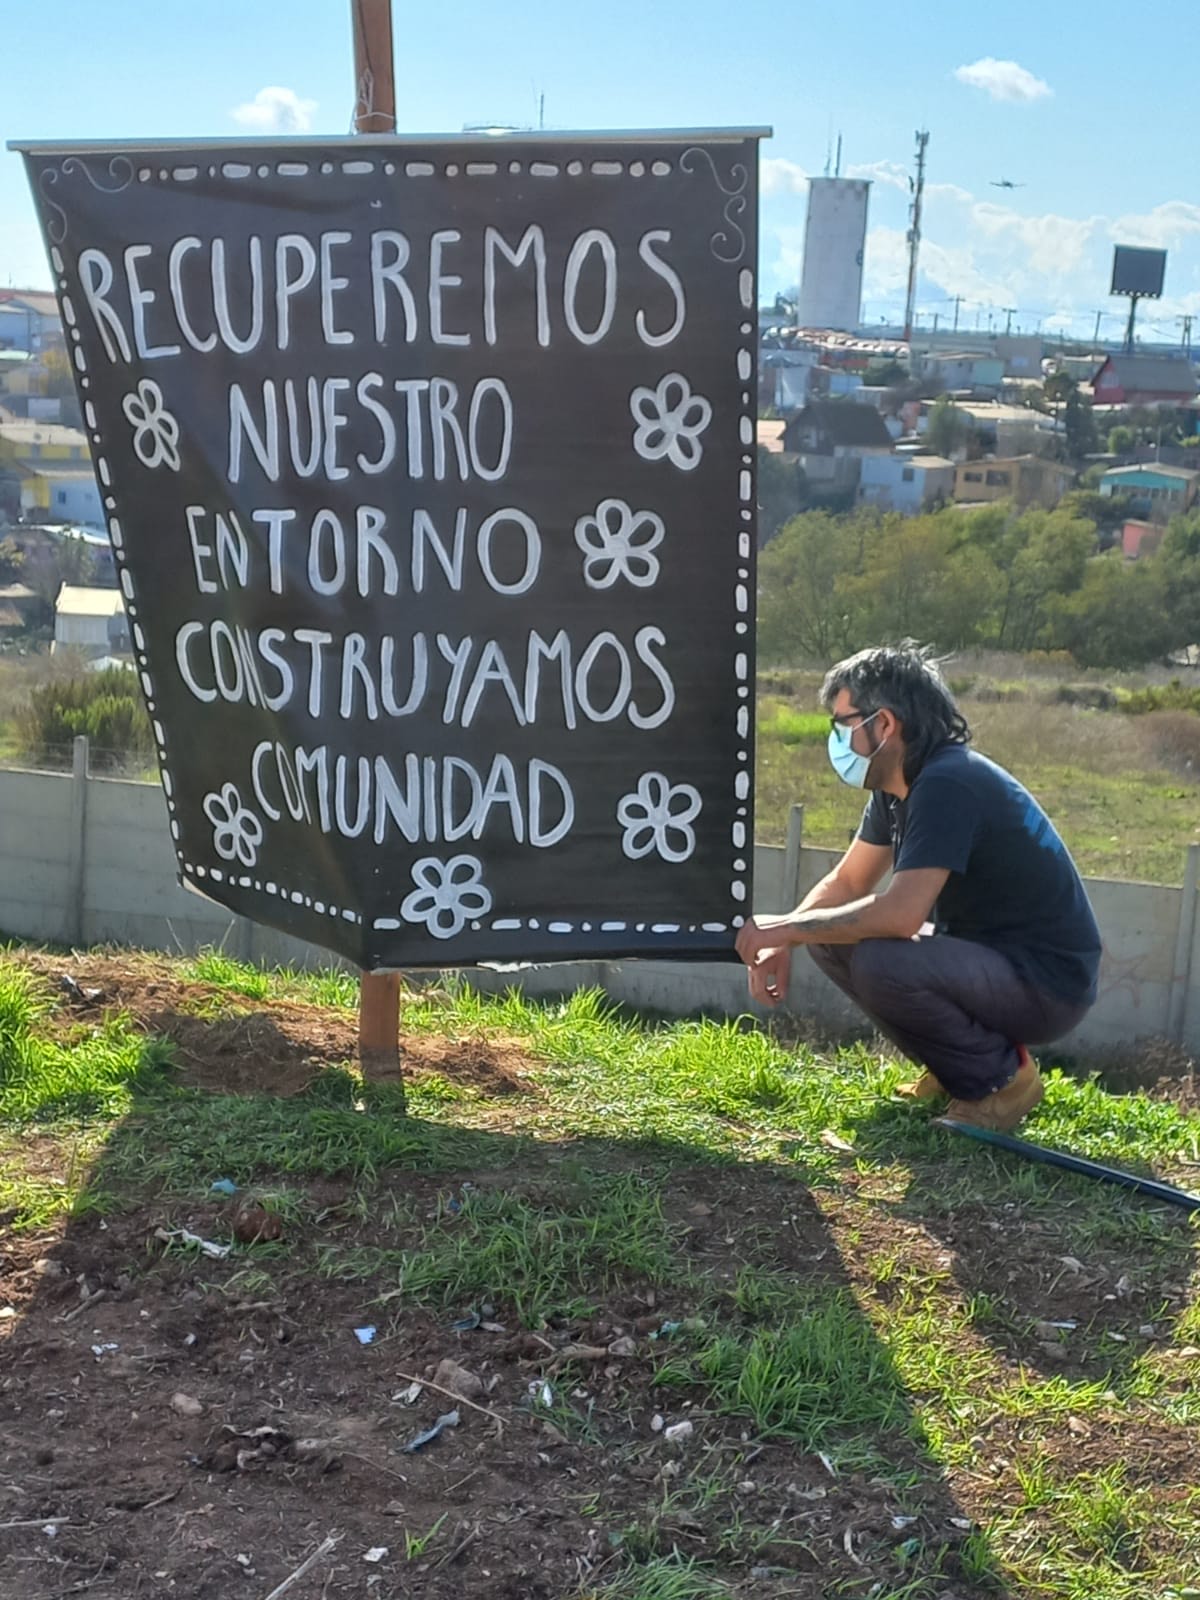 RECUPEREMOS
NUESTRO
ENTORNO
CONSTRUYAMOS
COMUNIDAD